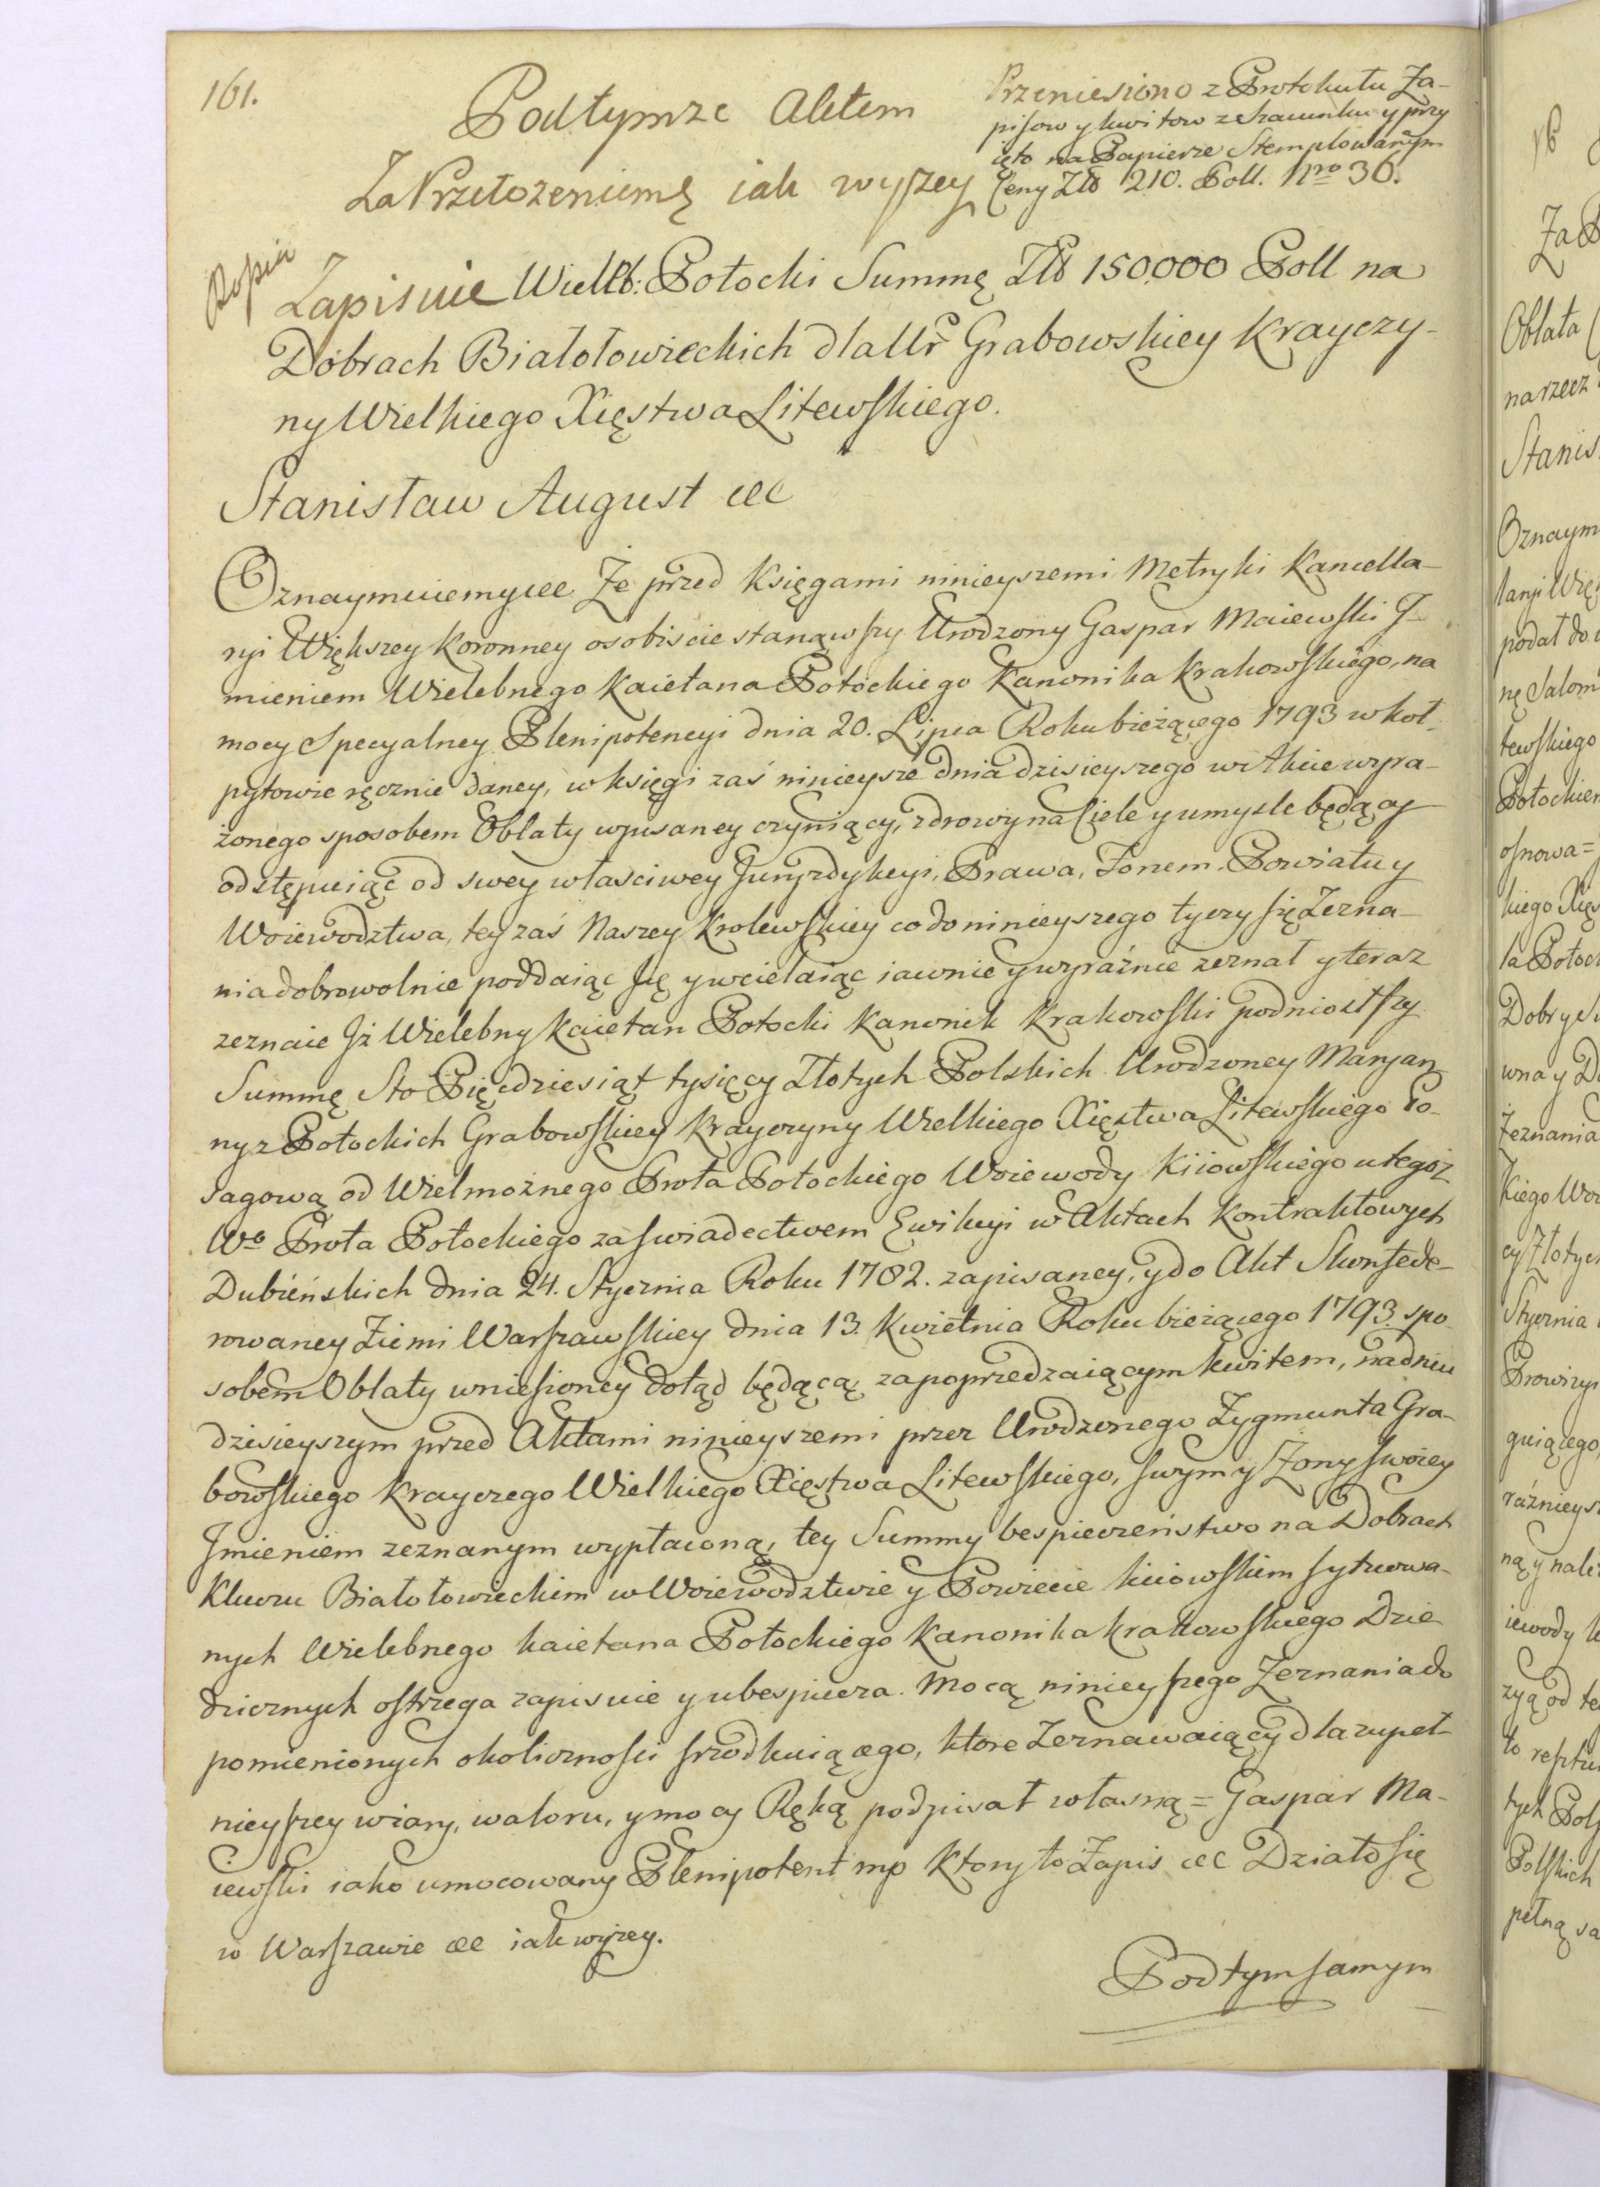 161.
Podtymże Aktem
Za Przełożeniem &c iak wyszey
Przeniesiono z Protokułu Za-
pisow y kwitow z Szacunku y przy
ięto na Papierze Stemplowanym
Ceny Złł 210. Poll. Nro 36.
Kopia
Zapisuie Wielb: Potocki Summę Złł 150.000 Poll na
Dobrach Białołowieckich dla Ur Grabowskiey Krayczy-
ny Wielkiego Xięstwa Litewskiego.
Stanisław August &c
Oznaymuiemy &c Że przed Księgami ninieyszemi Metryki Kancella-
ryi Większey Koronney osobiscie stanąwszy Urodzony Gaspar Maiewski J-
mieniem Wielebnego Kaietana Potockiego Kanonika Krakowskiego, na
mocy Specyalney Plenipotencyi dnia 20. Lipca Roku bieżącego 1793 w Koł-
pytowie ręcznie daney, w księgi zaś ninieysze dnia dzisieyszego w Akcie wyra-
żonego sposobem Oblaty wpisaney czyniący, zdrowy na Ciele y umysle będący
odstępuiąc od swey własciwey Juryzdykcyi, Prawa, Forem, Powiatu y
Woiewodztwa, tey zaś Naszey Krolewskiey co do ninieyszego tyczy się Zezna-
nia dobrowolnie poddaiąc się y wcielaiąc iawnie y wyraźnie zeznał y teraz
zeznaie Jż Wielebny Kaietan Potocki Kanonik Krakowski podniosłszy
Summę Sto Pięcdziesiąt tysięcy Złotych Polskich Urodzoney Maryan-
ny z Potockich Grabowskiey Krayczyny Wielkiego Xięstwa Litewskiego Po-
sagową od Wielmożnego Prota Potockiego Woiewody Kiiowskiego u tegoż
Wo Prota Potockiego za swiadectwem Ewikcyi w Aktach Kontraktowych
Dubieńskich dnia 24. Stycznia Roku 1782. zapisaney, y do Akt Skonfede-
rowaney Ziemi Warszawskiey dnia 13. Kwietnia Roku bieżącego 1793. spo-
sobem Oblaty wniesioney dotąd będącą za poprzedzaiącym kwitem, na dniu
dzisieyszym przed Aktami ninieyszemi przez Urodzonego Zygmunta Gra-
bowskiego Krayczego Wielkiego Xięstwa Litewskiego, swym y Żony swoiey
Jmieniem zeznanym wypłaconą, tey Summy bespieczeństwo na Dobrach
Kluczu Białołowieckim w Woiewodztwie y Powiecie kiiowskim sytuowa-
nych Wielebnego Kaietana Potockiego Kanonika Krakowskiego Dzie-
dzicznych ostrzega zapisuie y ubespiecza. Mocą ninieyszego Zeznania do
pomienionych okoliczności szrodkuiącego, ktore Zeznawaiący dla zupeł-
nieyszey wiary, waloru, y mocy Ręką podpisał własną = Gaspar Ma-
iewski iako umocowany Plenipotent mp Ktory to Zapis &c Działo się
w Warszawie &c iak wyzey.
Pod tym samym